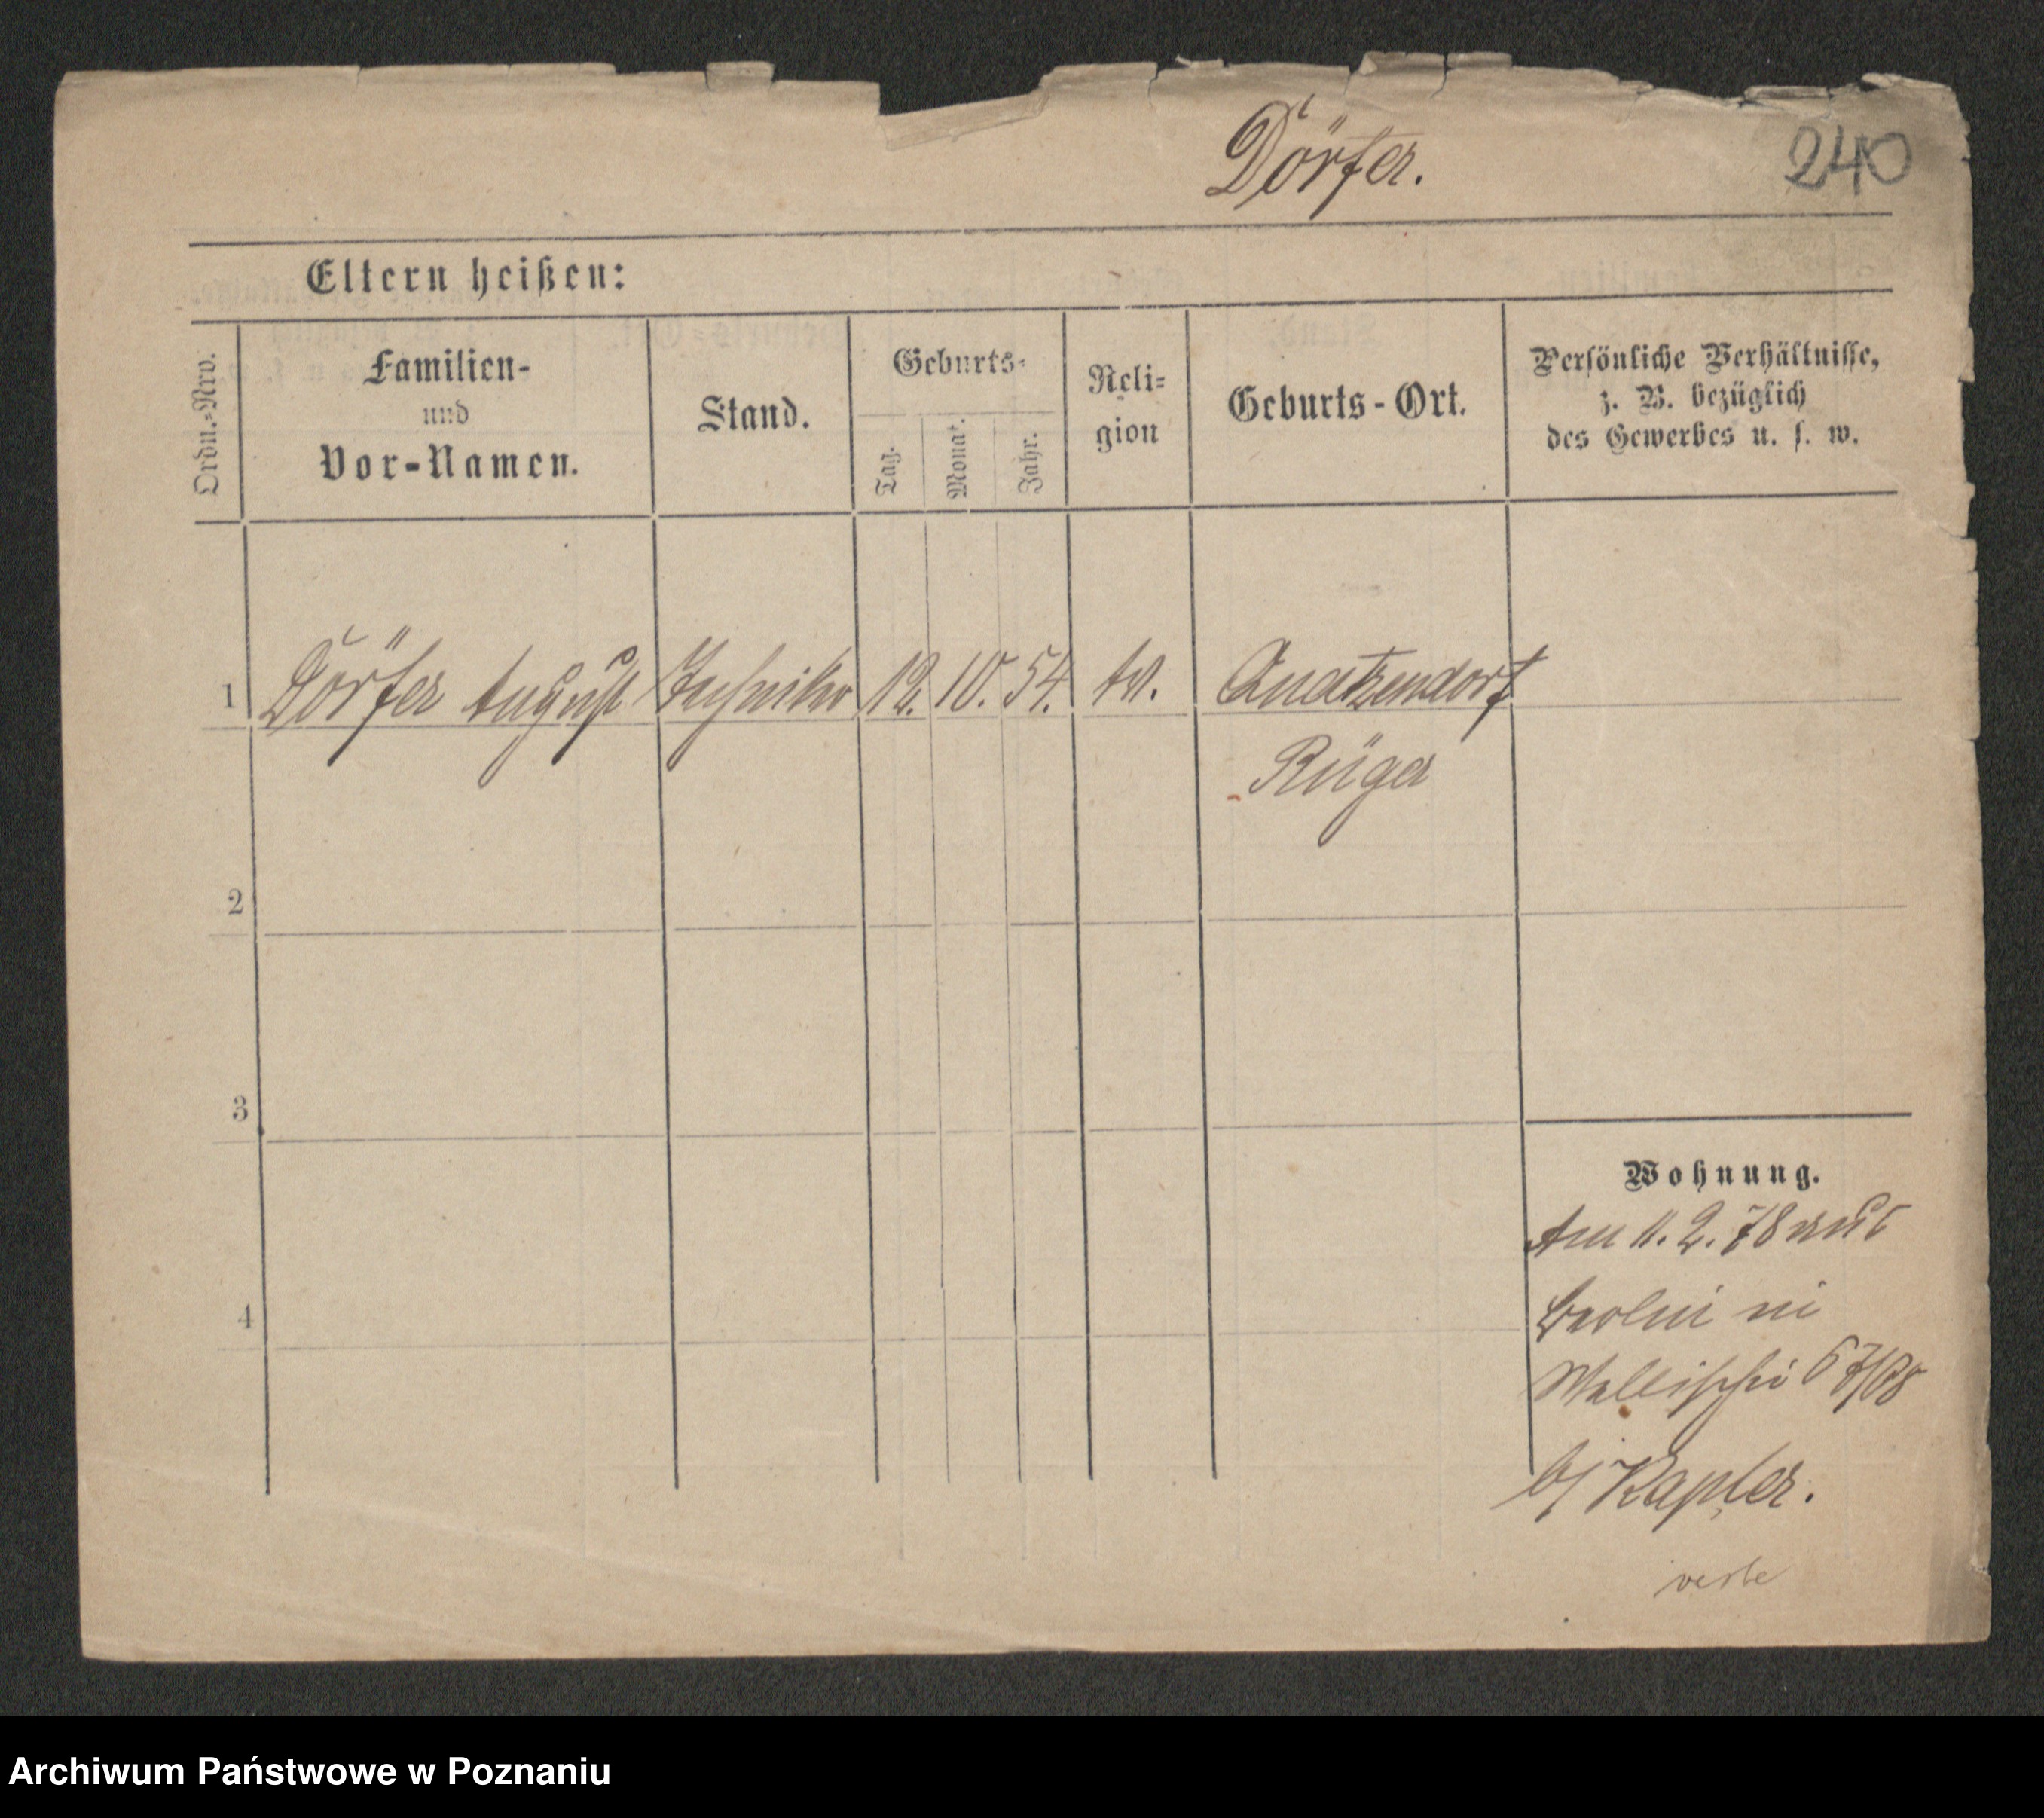 Dörfer.
240
Eltern heißen:
Ordn.=Nro.
Familien-
und
Vor-Namen.
Stand.
Geburts-
Tag.
Monat.
Jahr.
Reli=
gion
Geburts-Ort.
Persönliche Verhältnisse,
z. B. bezüglich
des Gewerbes u. s. w.
1 Dörfer August Techniker 12. 10. 54. ev. Quatzendorf
Rügen
2
3
4
Wohnung.
Am 11. 2. 78 aus
Berlin in
Wallischei 67/68
b/ Kapler.
Archiwum Państwowe w Poznaniu